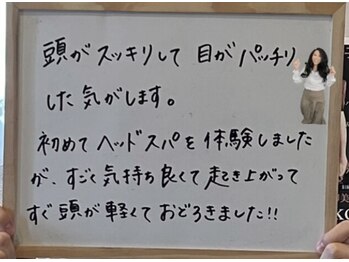 頭がスッキリして目がパッチリ
した気がします。
初めてヘッドスパを体験しました
が、すごく気持ち良くて起き上がって
すぐ頭が軽くておどろきました!!